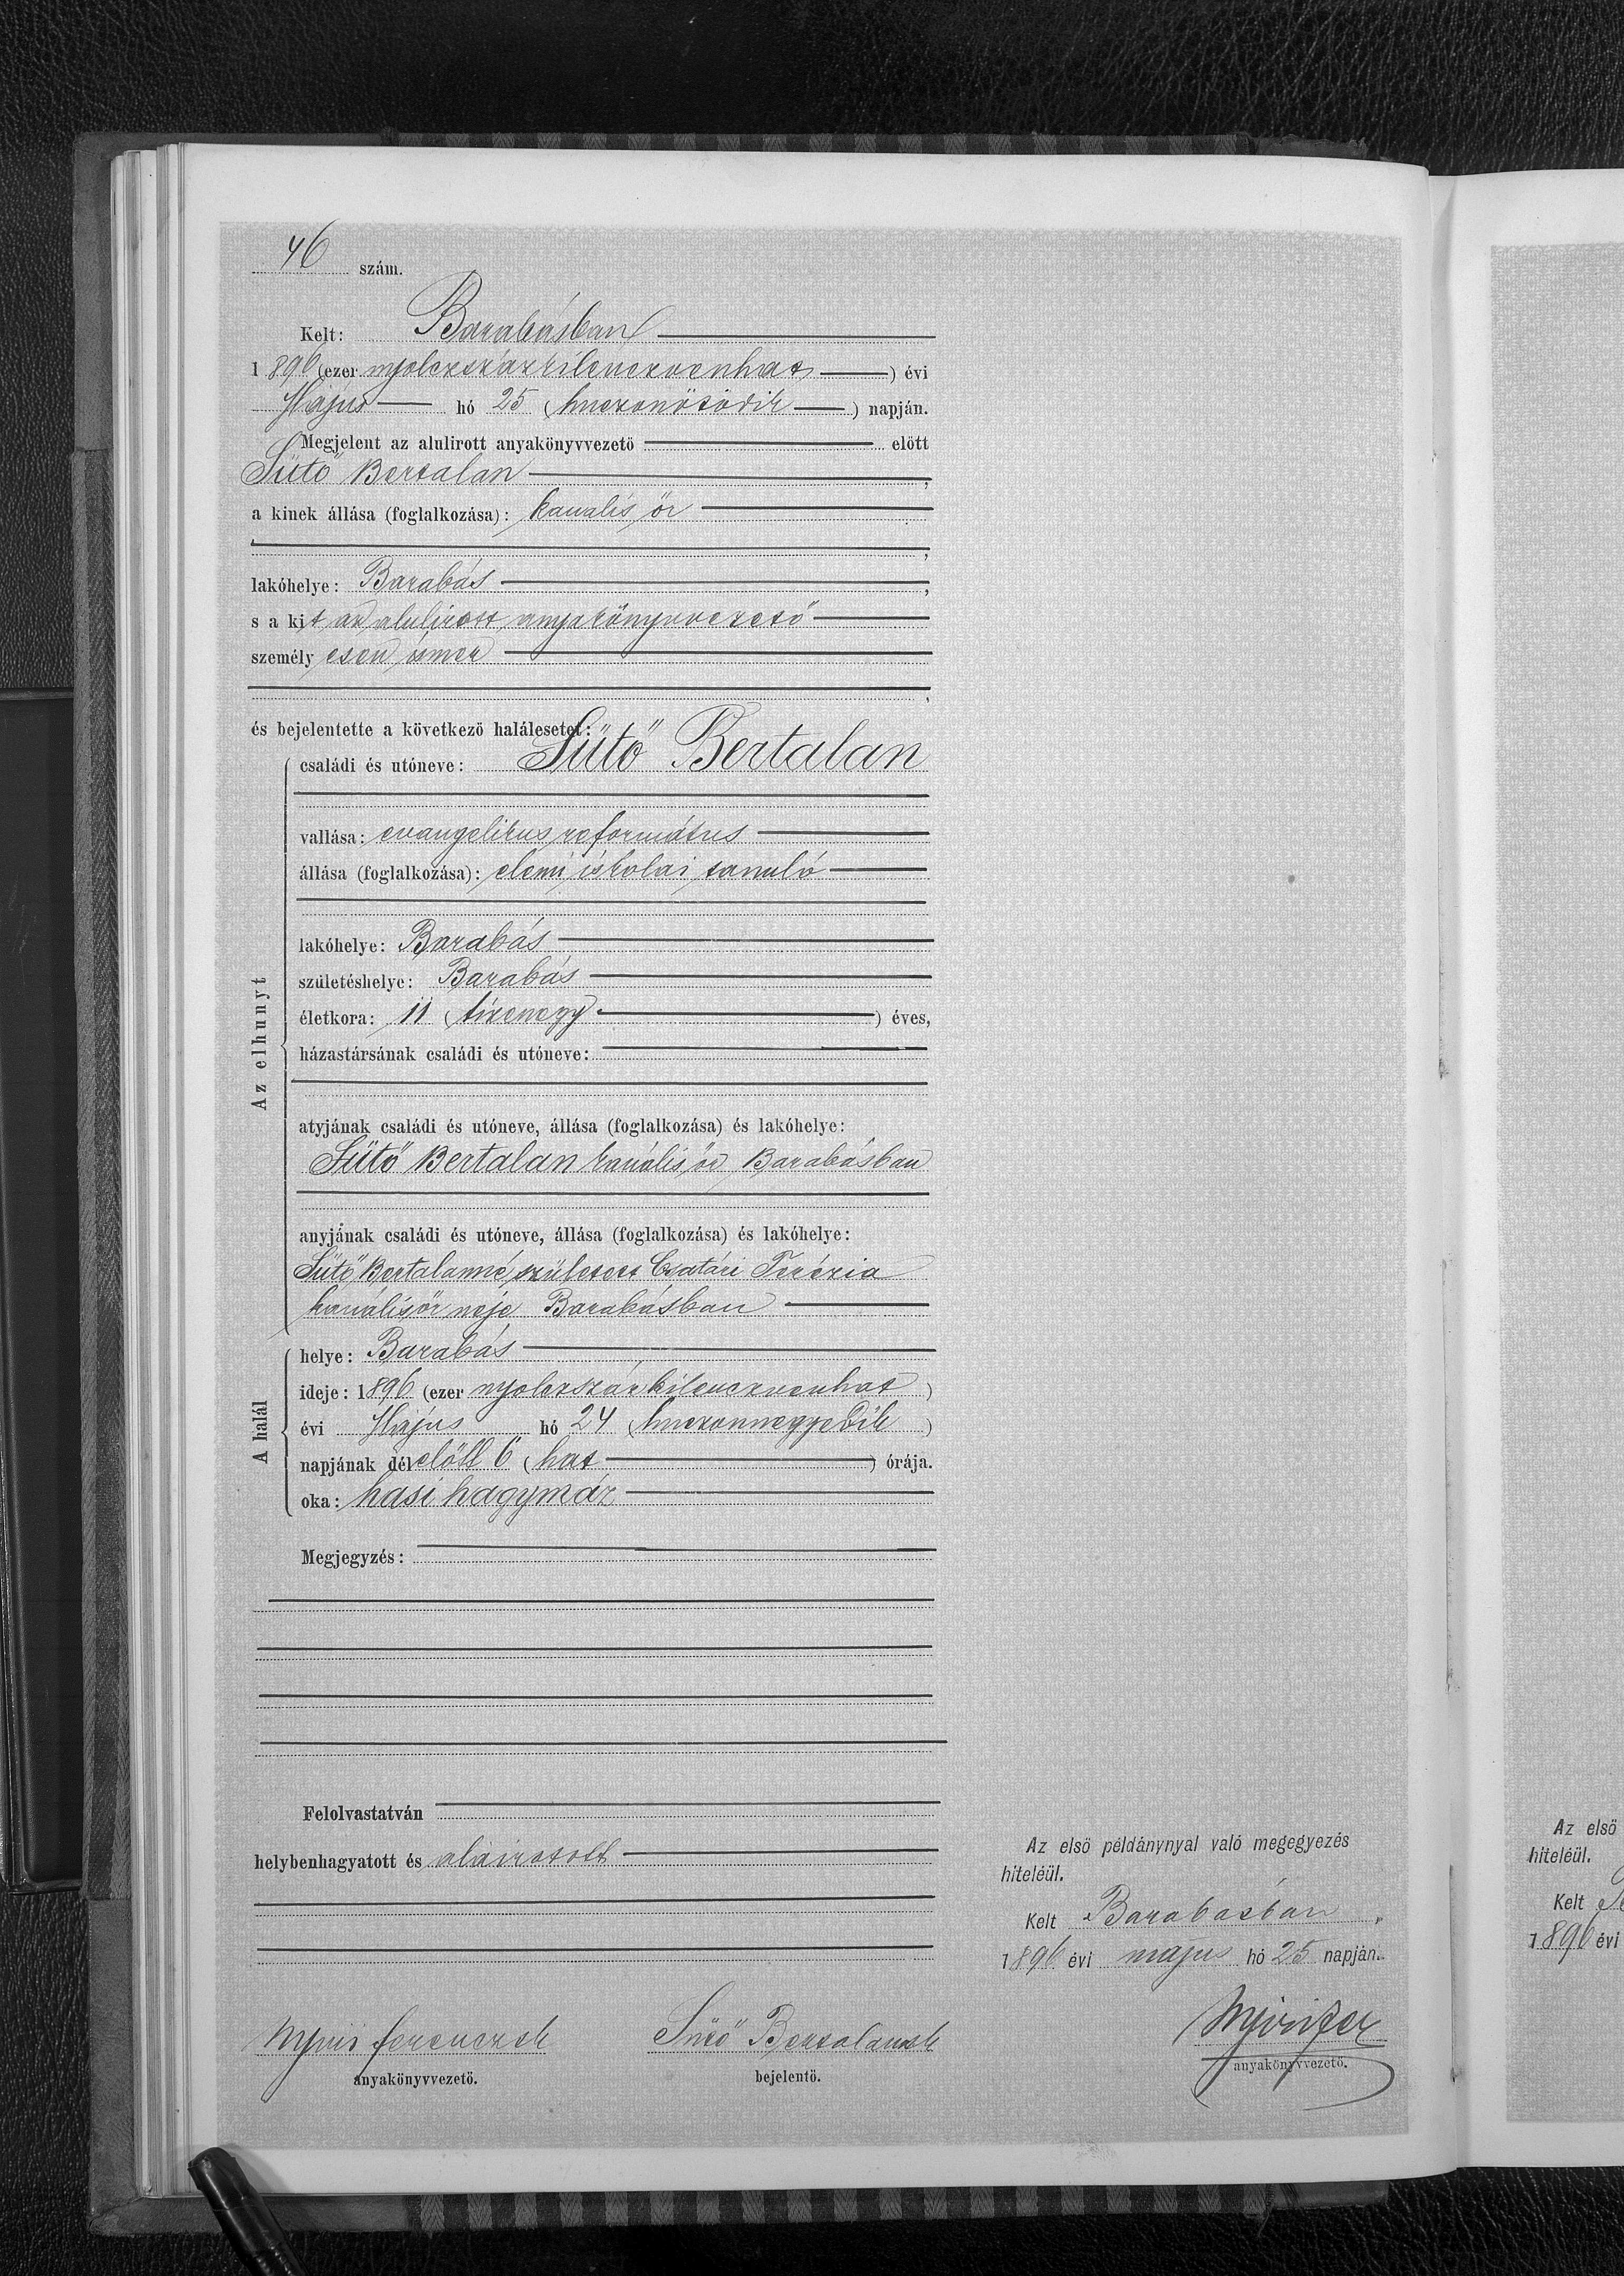 46 szám.
Kelt: Barabásban
1896 (ezer nyolczszázkilenczvenhat ) évi
Május hó 25 (huszonötödik ) napján.
Megjelent az alulirott anyakönyvvezetö elött
Sütő Bertalan ,
a kinek állása (foglalkozása): kanális őr
,
lakóhelye: Barabás ,
s a kit az alulirott anyakönyvvezető
személyesen ismer
,
és bejelentette a következö halálesetet:
családi és utóneve: Sütő Bertalan
vallása: evangelikus református
állása (foglalkozása): elemi iskolai tanuló
lakóhelye: Barabás
születéshelye: Barabás
életkora: 11 (tizenegy ) éves,
házastársának családi és utóneve:
atyjának családi és utóneve, állása (foglalkozása) és lakóhelye:
Sütő Bertalan kanális őr Barabásban
anyjának családi és utóneve, állása (foglalkozása) és lakóhelye:
Sütő Bertalanné született Csatári Terézia
kanális őr neje Barabásban
Az elhunyt
helye: Barabás
ideje: 1896 (ezer nyolczszázkilenczvenhat )
évi Május hó 24 (huszonnegyedik )
napjának délelőtt 6 (hat ) órája.
oka: hasi hagymáz
A halál
Megjegyzés:
Felolvastatván
helybenhagyatott és aláiratott
Ferenczsk Sütő Bertalansk
anyakönyvvezetö. bejelentö.
Az elsö példánynyal való megegyezés
hiteléül.
Kelt Barabásban ,
1896 évi május hó 25 napján.
anyakönyvvezetö.
Az elsö
hiteléül.
Kelt
1896 évi